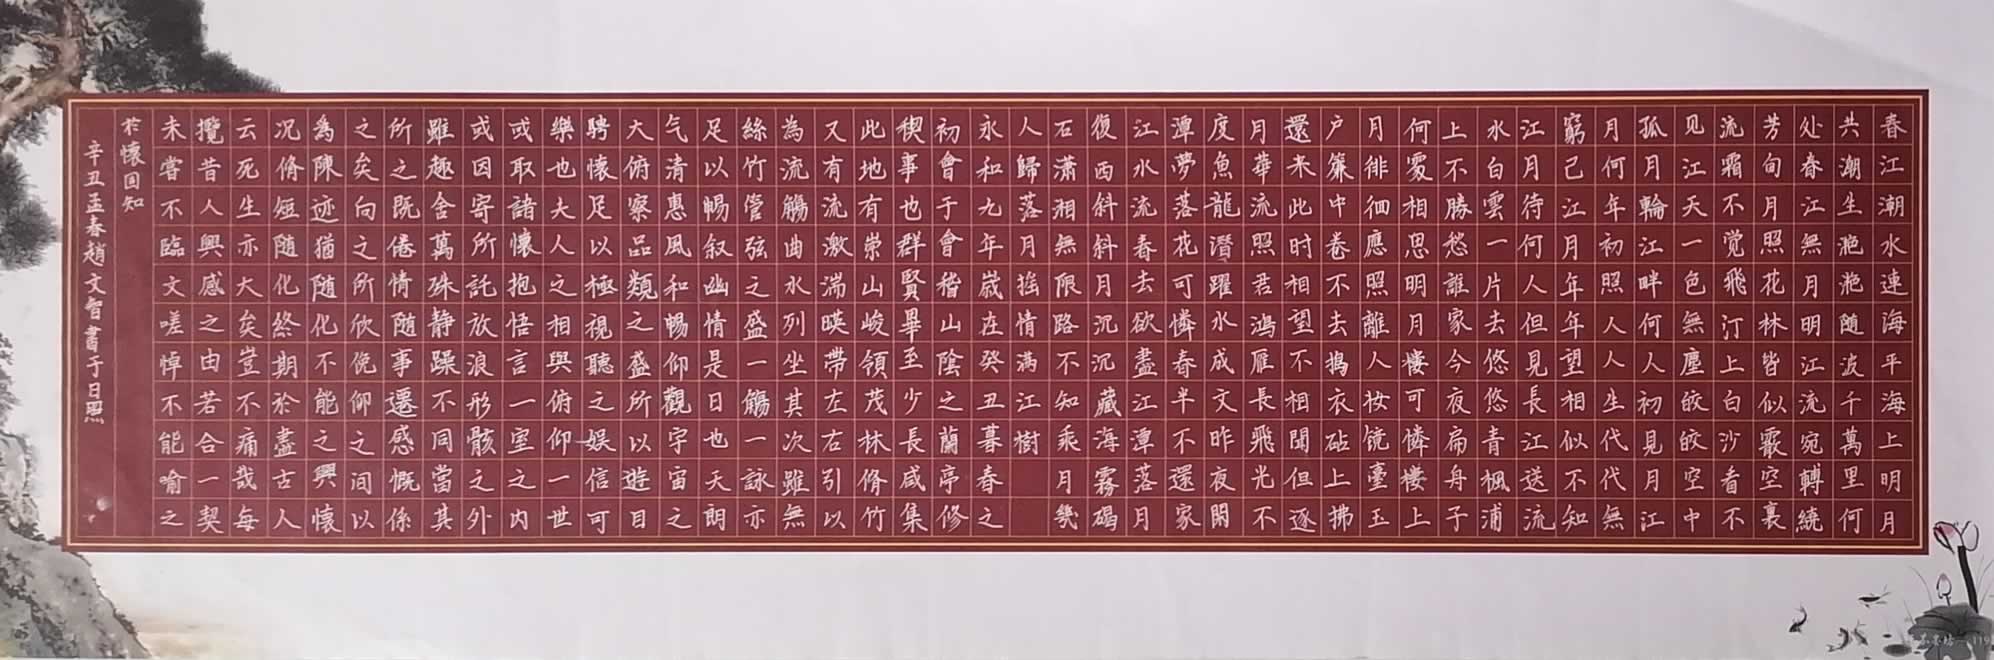 春江潮水連海平海上明月
共潮生滟滟随波千萬里何
处春江無月明江流宛轉繞
芳甸月照花林皆似霰空裏
流霜不觉飛汀上白沙看不
见江天一色無塵皎皎空中
孤月輪江畔何人初見月江
月何年初照人人生代代無
窮己江月年年望相似不知
江月待何人但見長江送流
水白雲一片去悠悠青楓浦
上不勝愁誰家今夜扁舟子
何處相思明月樓可憐樓上
月徘徊應照離人妆镜臺玉
户簾中卷不去搗衣砧上拂
還来此时相望不相聞但逐
月華流照君鴻雁長飛光不
度魚龍潜躍水成文昨夜閑
潭夢落花可憐春半不還家
江水流春去欲盡江潭落月
復西斜斜月沉沉藏海霧碣
石瀟湘無限路不知乘月幾
人歸落月摇情满江樹
永和九年嵗在癸丑暮春之
初會于會稽山陰之蘭亭修
稧事也群賢畢至少長咸集
此地有崇山峻領茂林脩竹
又有流激湍暎带左右引以
為流觴曲水列坐其次雖無
絲竹管弦之盛一觴一詠亦
足以暢叙幽情是日也天朗
气清惠風和暢仰觀宇宙之
大俯察品類之盛所以遊目
騁懷足以極視聽之娱信可
樂也夫人之相與俯仰一世
或取諸懷抱悟言一室之内
或因寄所託放浪形骸之外
雖趣舍萬殊静躁不同當其
所之既倦情随事遷感慨係
之矣向之所欣俛仰之间以
為陳迹猶随化不能之興懷
况脩短随化終期於盡古人
云死生亦大矣豈不痛哉每
攬昔人興感之由若合一契
未嘗不臨文嗟悼不能喻之
於懷固知
辛丑孟春趙文智書于日照